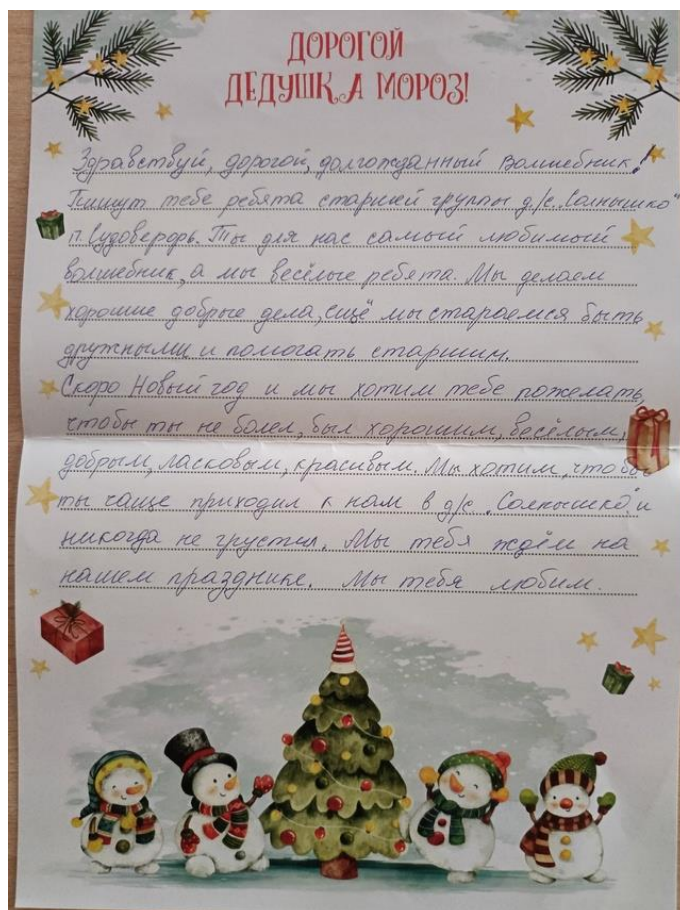 ДОРОГОЙ
ДЕДУШКА МОРОЗ!
Здравствуй, дорогой, долгожданный Волшебник!
Пишут тебе ребята старшей группы д/с „Солнышко"
п. Судоверфь. Ты для нас самый любимый
волшебник, а мы весёлые ребята. Мы делаем
хорошие добрые дела, ещё мы стараемся быть
дружными и помогать старшим.
Скоро Новый год и мы хотим тебе пожелать,
чтобы ты не болел, был хорошим, весёлым,
добрым, ласковым, красивым. Мы хотим, чтобы
ты чаще приходил к нам в д/с „Солнышко" и
никогда не грустил. Мы тебя ждём на
нашем празднике. Мы тебя любим.